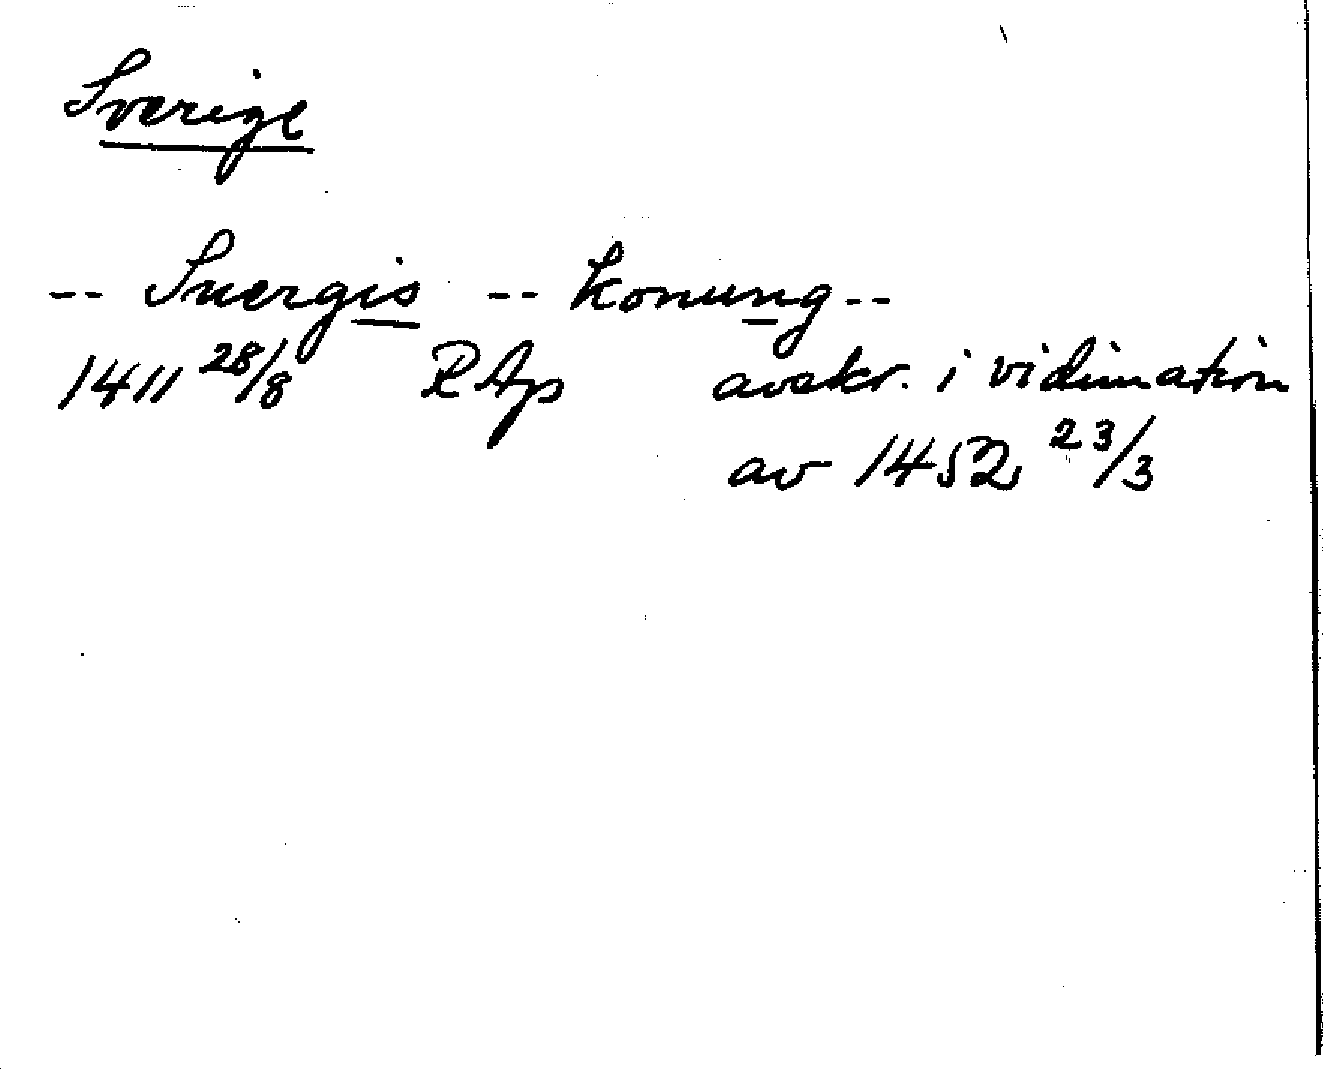 Sverige
-- Suergis -- konung --
1411 28/8 RAp avskr. i vidimation
av 1452 23/3